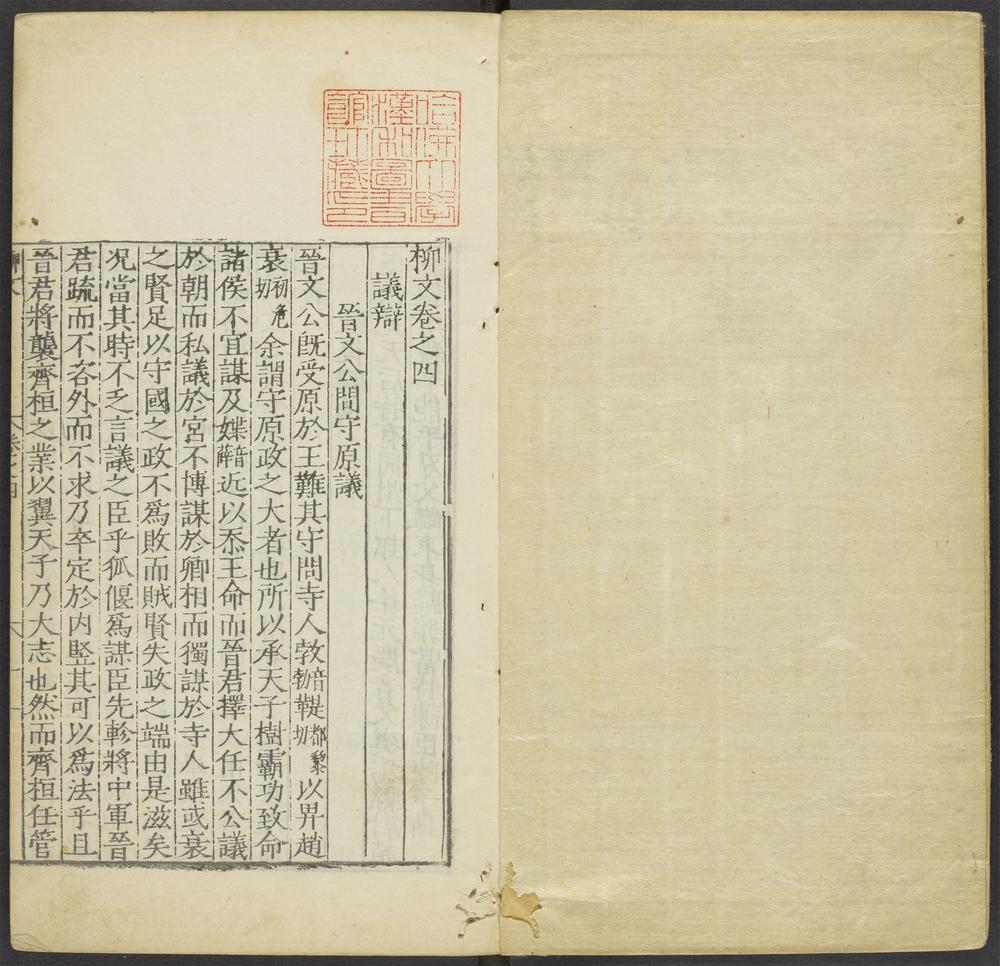 哈佛大學
漢和圖書
館珍藏印
柳文卷之四
議辯
晉文公問守原議
晉文公既受原於王難其守問寺人㪍音勃鞮都黎切以畀趙
衰初危切余謂守原政之大者也所以承天子樹霸功致命
諸侯不宜謀及媟䙝音薛近以忝王命而晉君擇大任不公議
於朝而私議於宮不博謀於卿相而獨謀於寺人雖或衰
之賢足以守國之政不爲敗而賊賢失政之端由是滋矣
况當其時不乏言議之臣乎狐偃爲謀臣先軫將中軍晉
君疏而不咨外而不求乃卒定於内竪其可以爲法乎且
晉君將襲齊桓之業以翼天子乃大志也然而齊桓任管